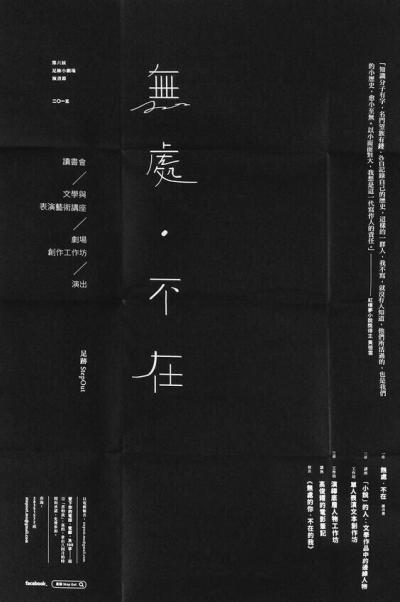 第六屆
足跡小劇場
演書節
二〇一五
無處・不在
讀書會
文學與
表演藝術講座
劇場
創作工作坊
演出
足跡 StepOut
「知識分子有字，名門望族有錢，各自記錄自己的歷史，這樣的一群人，我不寫，就沒有人知道，他們所活過的，也是我們
的小歷史，愈小至無。以小面面對大，我想是這一代寫作人的責任。」
紅樓夢小說獎得主 黃碧雲
無處・不在
讀書會
講座
「小說」的人：文學作品中的邊緣人物
工作坊
單人表演文本創作坊
工作坊
演繹底層人物工作坊
講座
高俊耀的電影筆記
演出
《無處的你，不在的我》
facebook.
足跡 Step Out